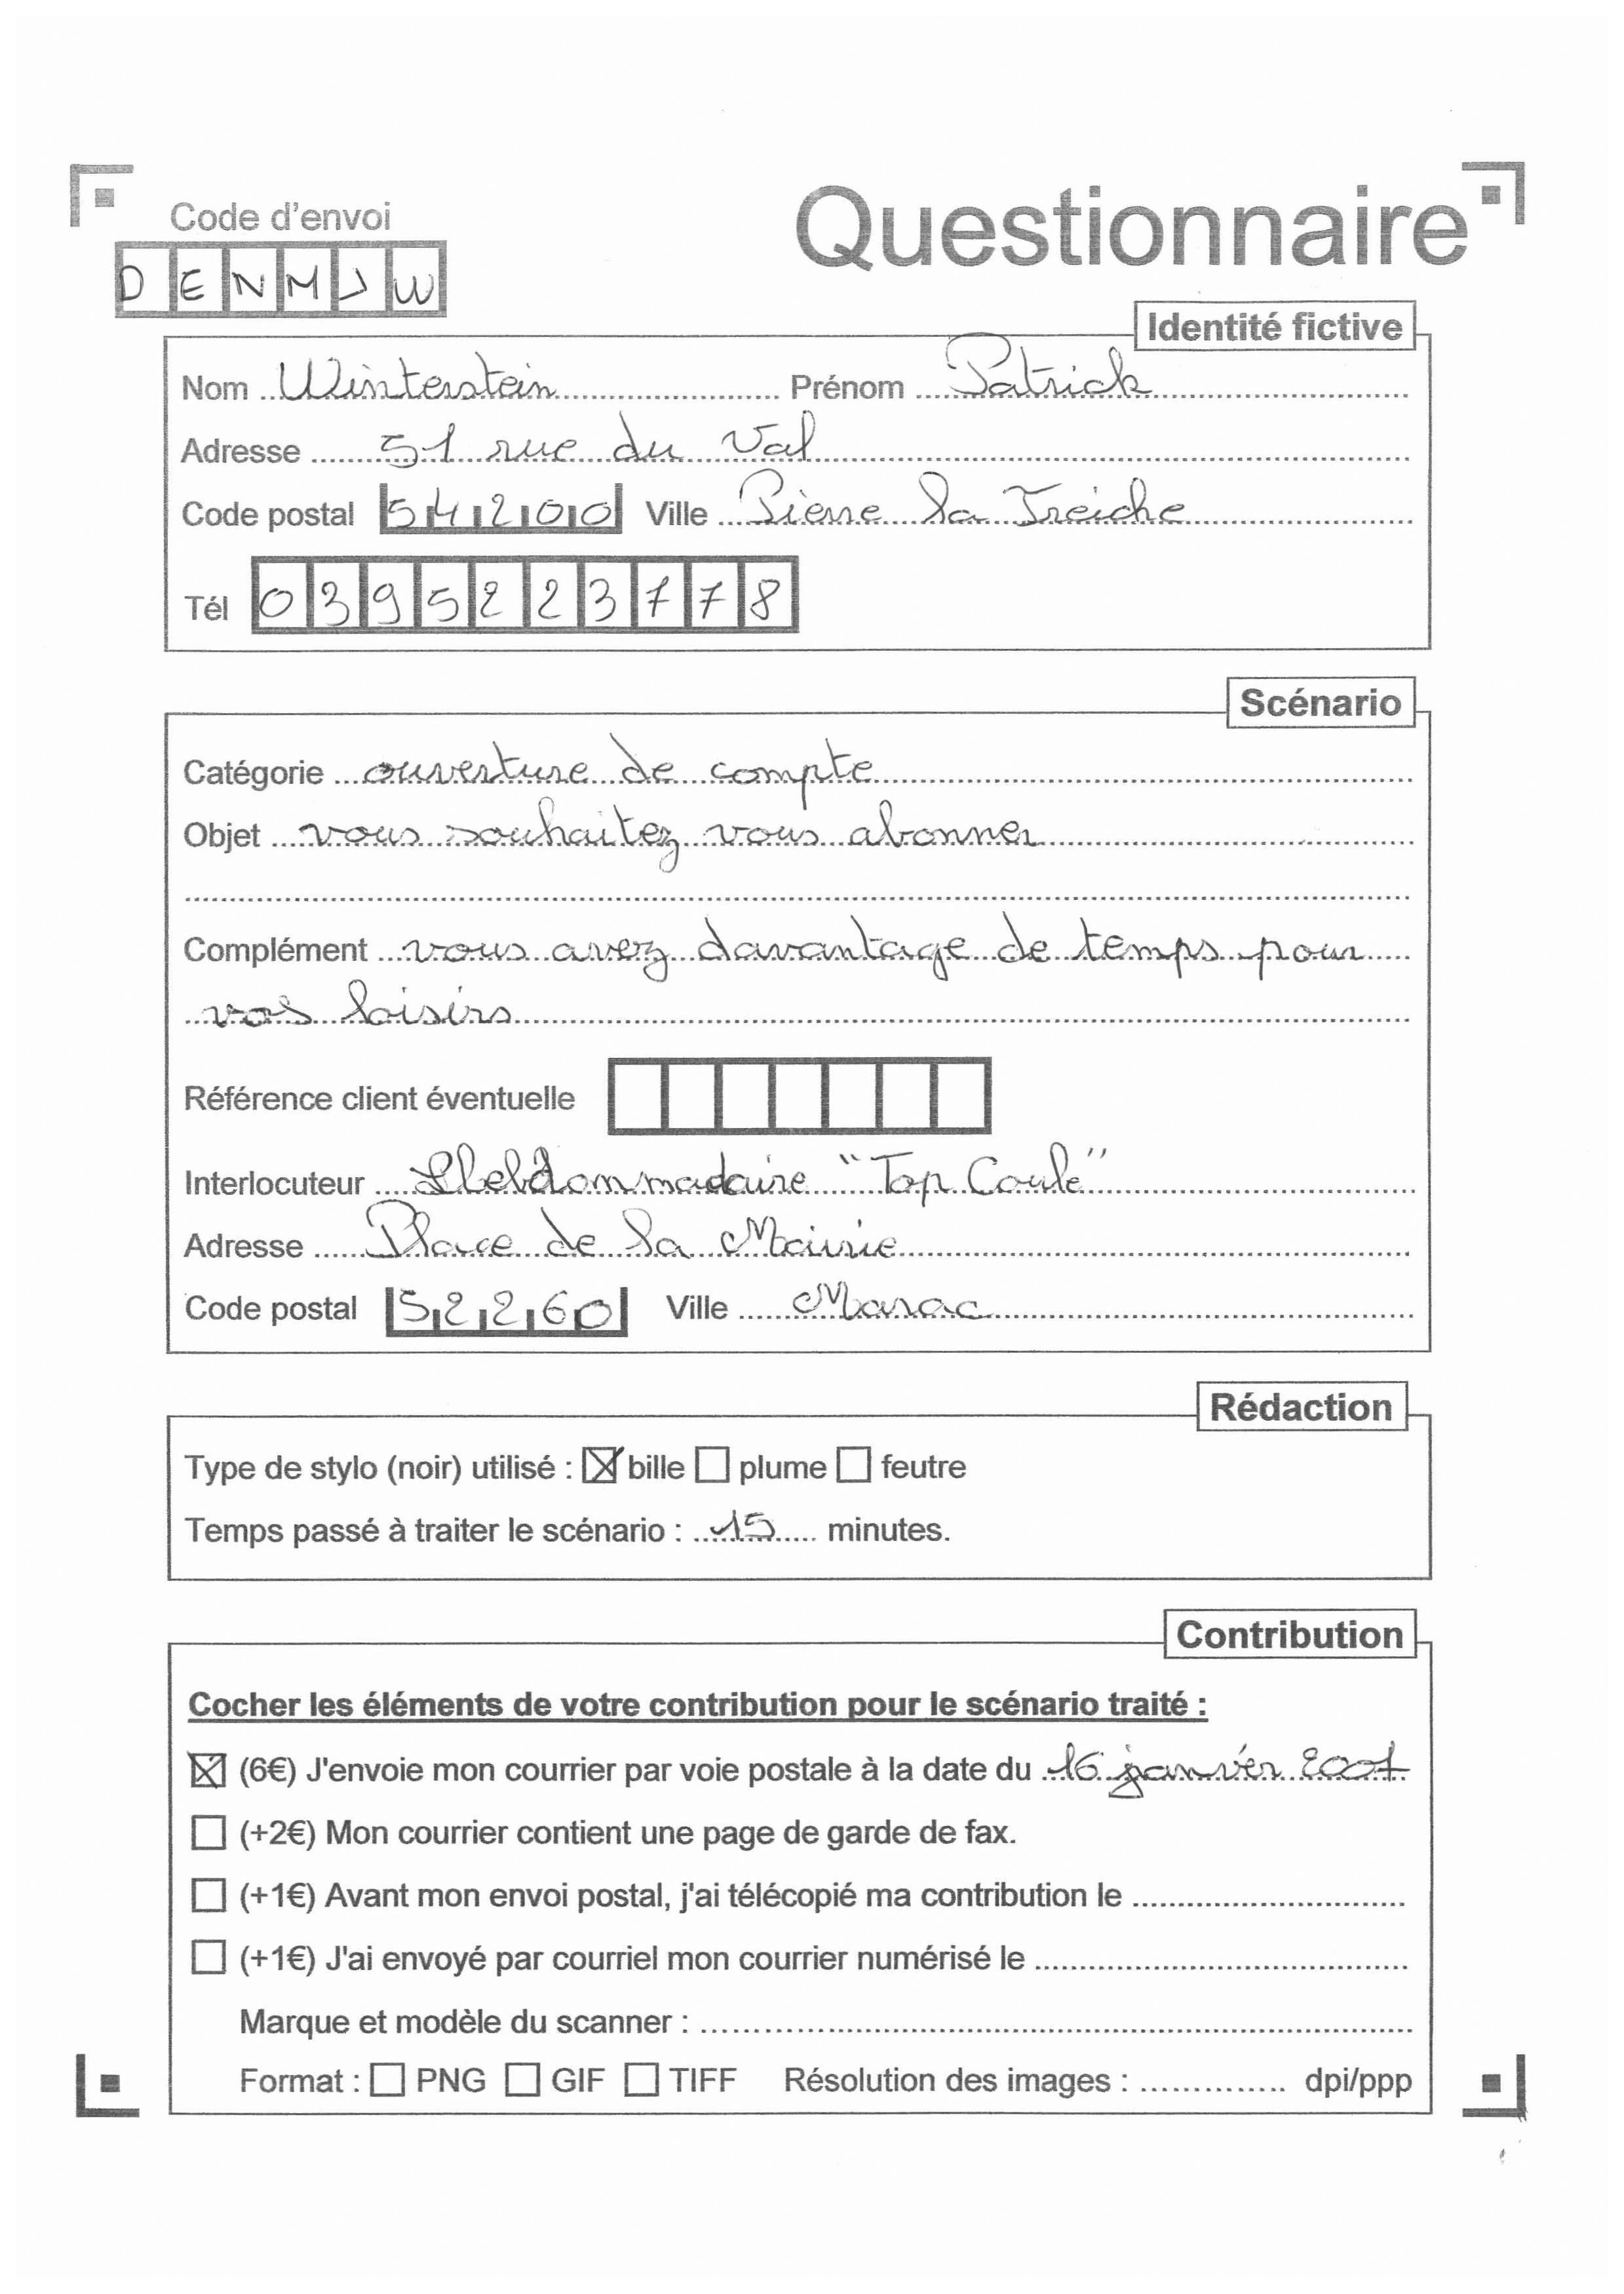 Code d'envoi
Questionnaire
D E N M J W
Identité fictive
Nom Winterstein Prénom Patrick
Adresse 51 rue du Val
Code postal 54200 Ville Pierre la Treiche
Tél 0395223778
Scénario
Catégorie ouverture de compte
Objet vous souhaitez vous abonner
Complément vous avez davantage de temps pour
vos loisirs
Référence client éventuelle
Interlocuteur Hebdommadaire "Top Coule"
Adresse Place de la Mairie
Code postal 52260 Ville Marac
Rédaction
Type de stylo (noir) utilisé : ☒ bille ☐ plume ☐ feutre
Temps passé à traiter le scénario : 15 minutes.
Contribution
Cocher les éléments de votre contribution pour le scénario traité :
☒ (6€) J'envoie mon courrier par voie postale à la date du 16 janvier 2007
☐ (+2€) Mon courrier contient une page de garde de fax.
☐ (+1€) Avant mon envoi postal, j'ai télécopié ma contribution le
☐ (+1€) J'ai envoyé par courriel mon courrier numérisé le
Marque et modèle du scanner :
Format : ☐ PNG ☐ GIF ☐ TIFF Résolution des images : dpi/ppp